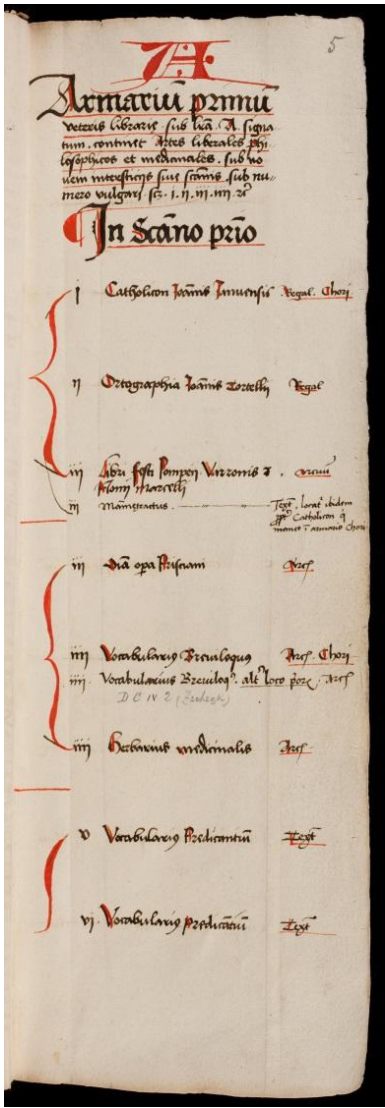 5
A
Armariū primū
veteris librarie . sub lrā . A . signa
tum . continet Artes liberales phi
losophicos et medicinales . sub no
uem intersticijs siue scānis . sub nu-
mero vulgari . scz . i . ii . iii . iiii . ꝛc
In Scāno prīo
i Catholicon Joānis Januensis . Regal . Chori
ii Ortographia Joānis Tortellij Regal
iii Libri festi Pompeii Varronis ⁊ .
Nonij Marcelli
iii Māmtractus . Text . locat ibidem
Catholicon q̄
manet ī armario Chori
iii Diā opa Prisciani Arc
iiii Vocabulariꝰ Breuiloquꝰ Arc . Chori
iiii . Vocabularius Breuiloqꝰ . altꝰ loco porꝝ . Arc
D C IV 2
iiii Herbarius medicinalis Arc .
v Vocabulariꝰ Predicantiū Text
vi . Vocabulariꝰ predicātiū Text